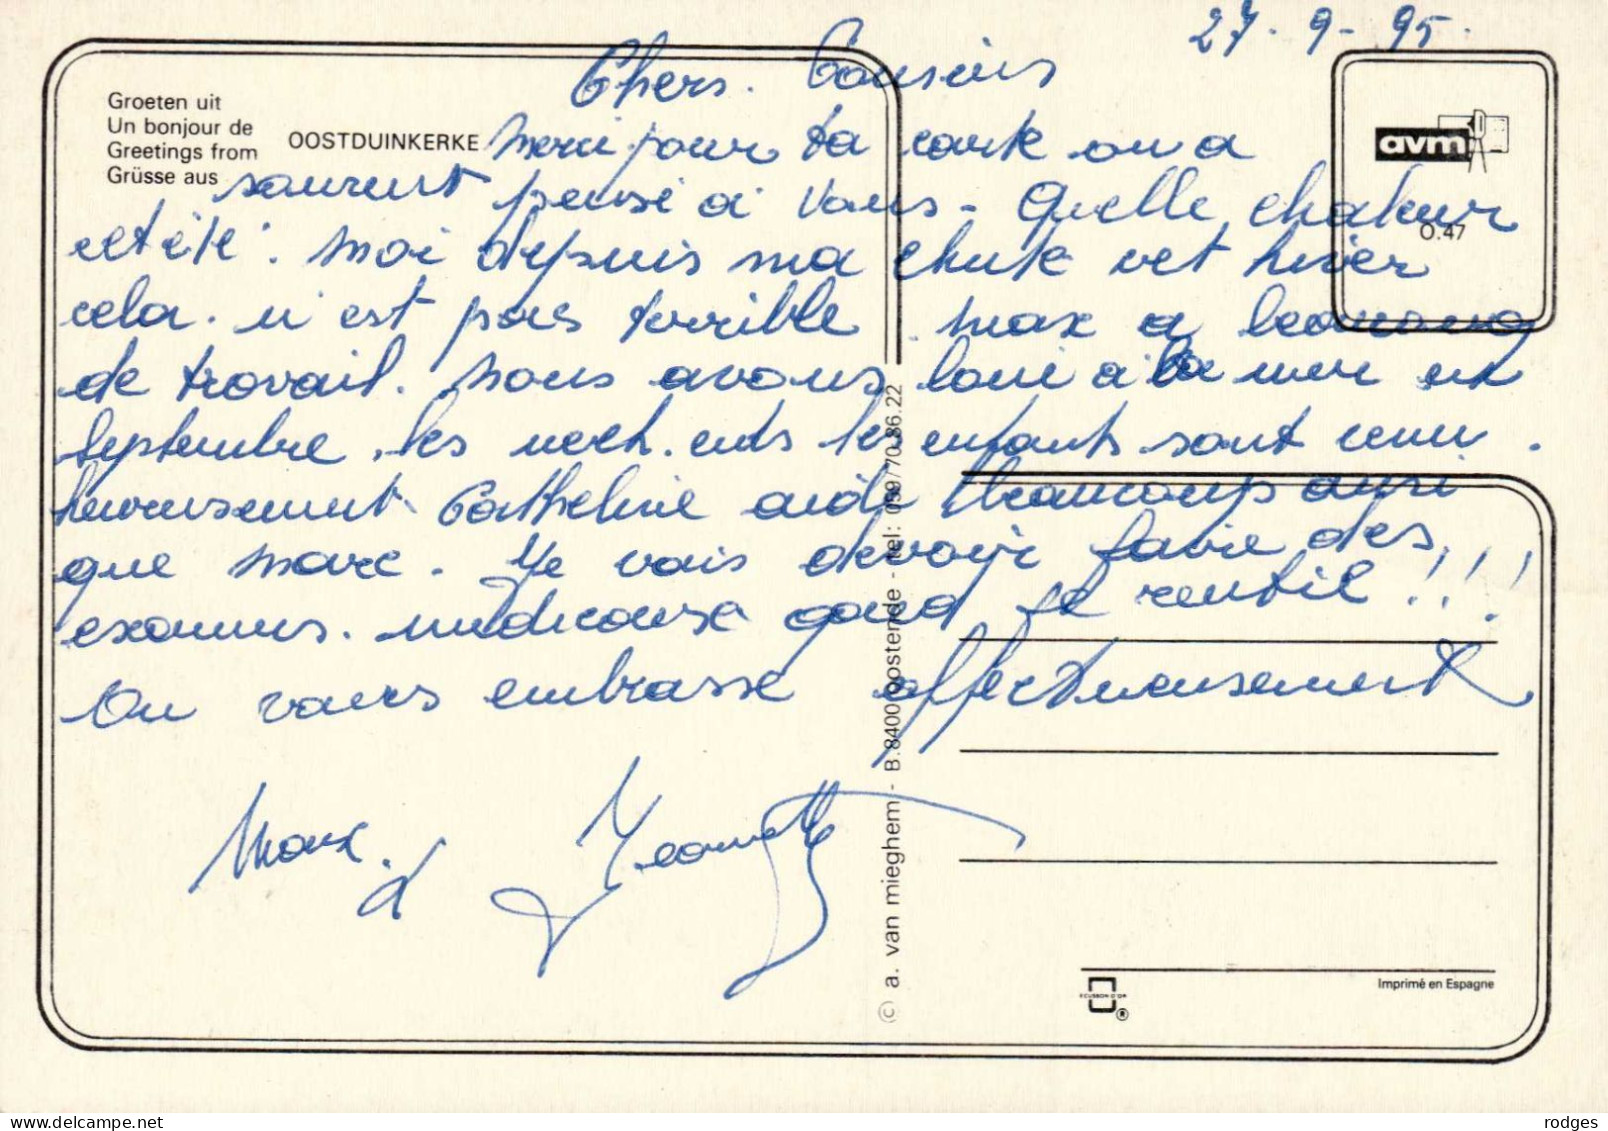 27.9-95.
Chers. Cousins
Groeten uit
Un bonjour de
Greetings from
Grüsse aus
OOSTDUINKERKE
avm
O.47
Merci pour ta carte on a
souvent pensé à vous - Quelle chaleur
cet été. Moi depuis ma chute cet hiver
cela. n'est pas terrible. Max a beaucoup
de travail. Nous avons loué à la mer en
Septembre. les enfants sont venu.
heureusement Catheline aide beaucoup ausi
que Marc. Je vais devoir faire des
examens. medicause quand je rentré !!!
On vous embrasse affectueusement
Max. & Jeannette
© a. van mieghem - B.8400 oostende - tel: 059/70.86.22
ECUSSON D'OR
®
Imprimé en Espagne
rodges